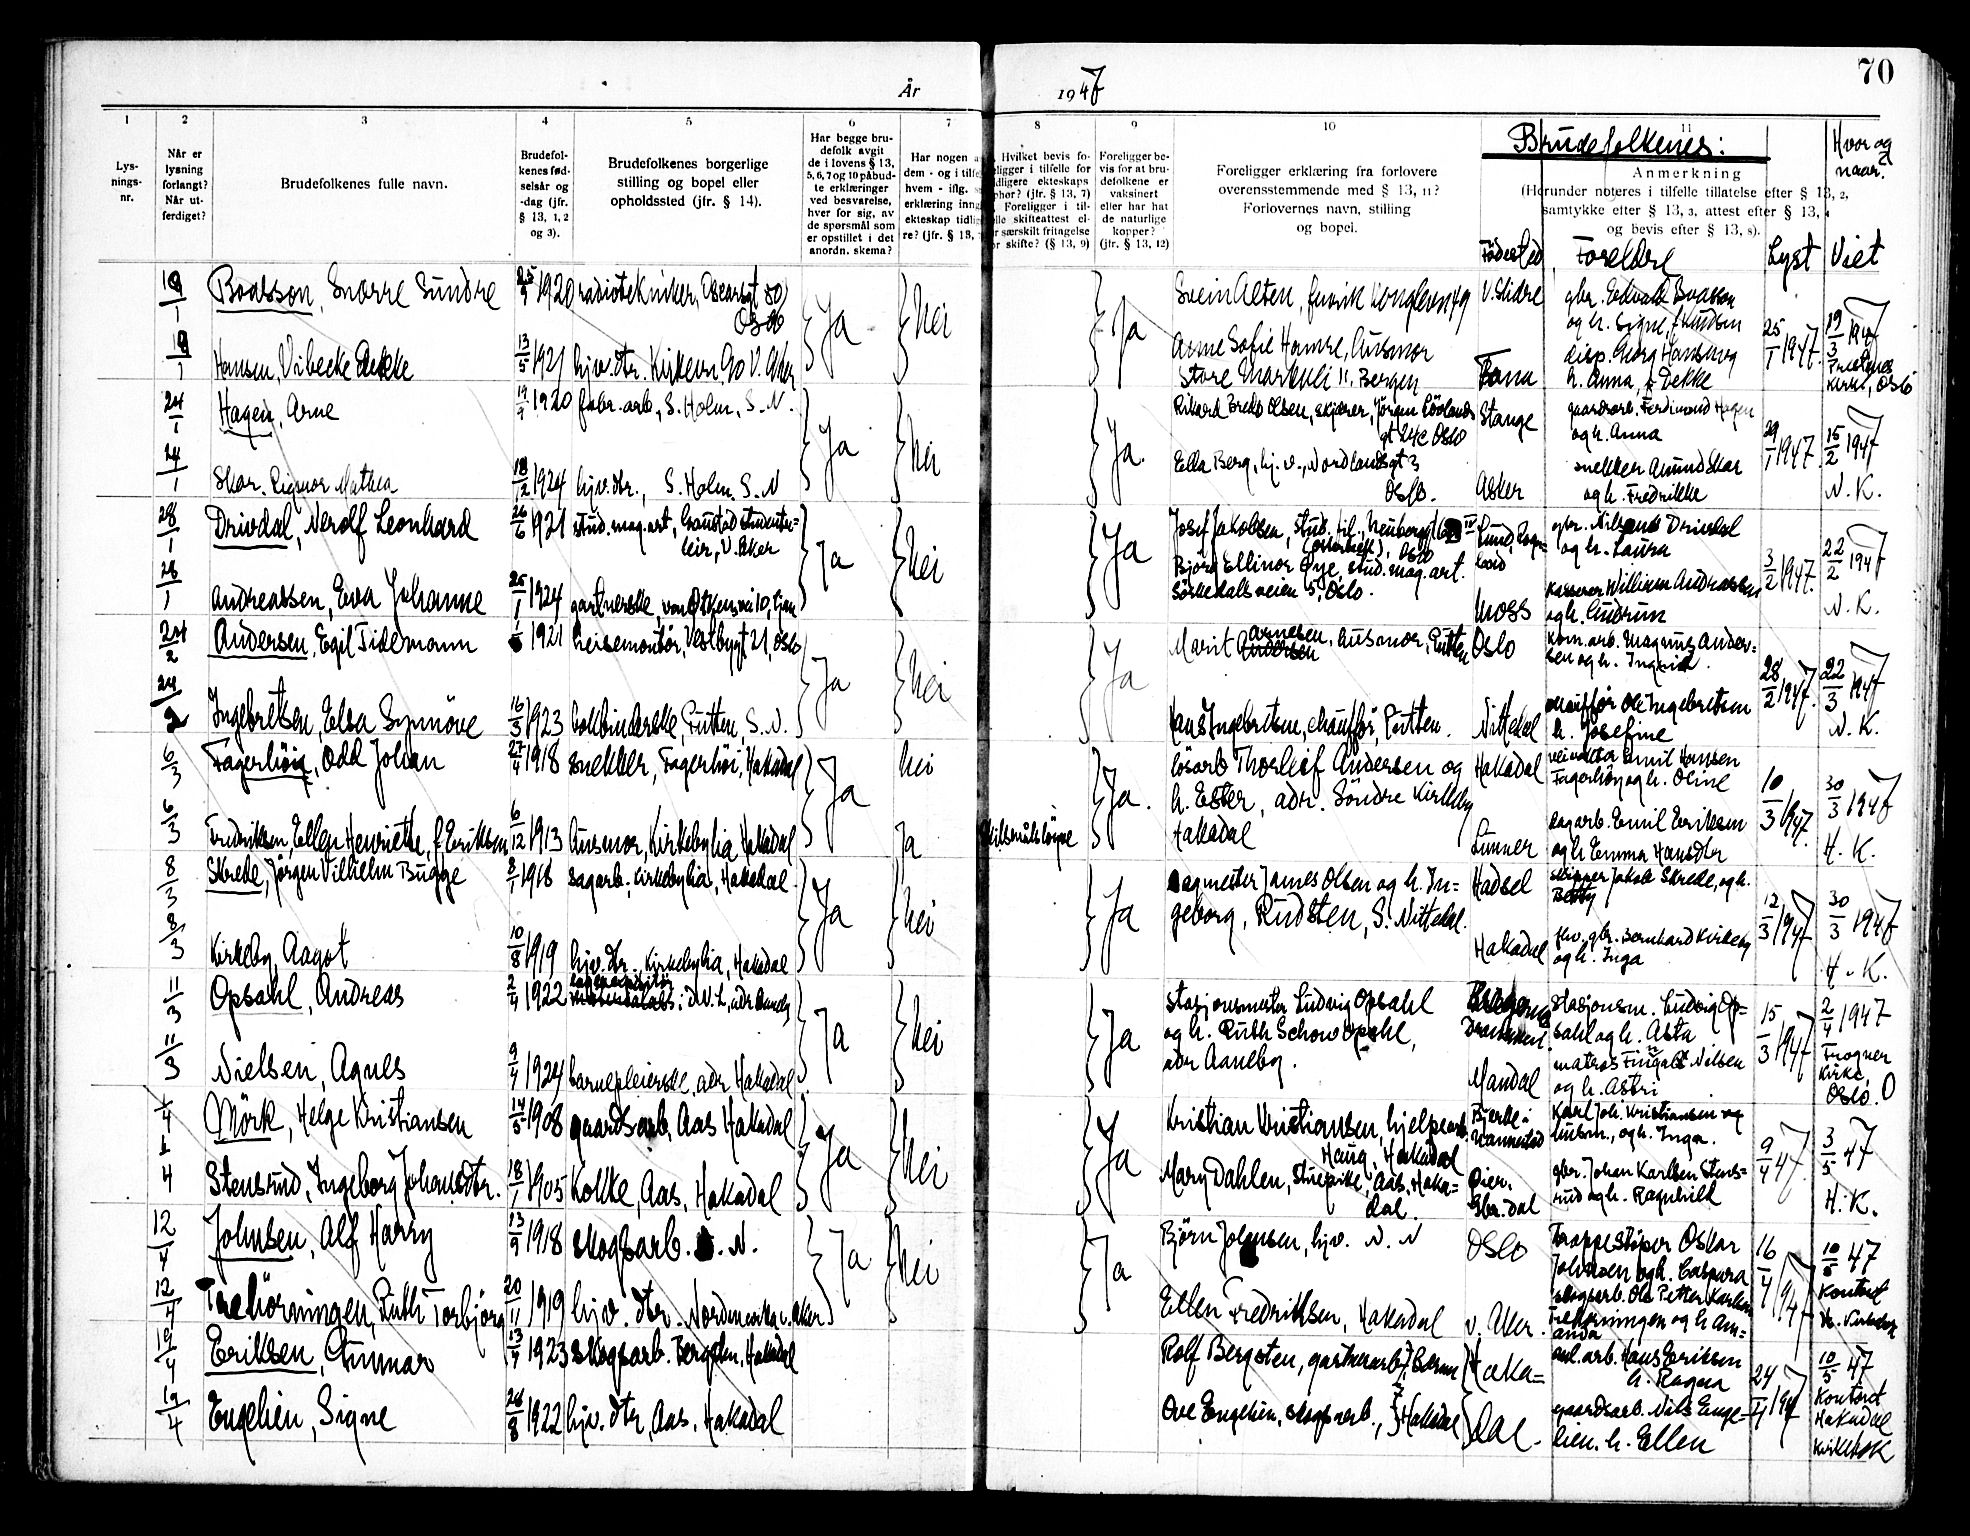 70
År 1947
1 2 3 4 5 6 7 8 9 10 11
Lys-
nings-
nr.
Når er
lysning
forlangt?
Når ut-
ferdiget?
Brudefolkenes fulle navn.
Brudefol-
kenes fød-
selsår og
-dag (jfr.
§ 13, 1, 2
og 3).
Brudefolkenes borgerlige
stilling og bopel eller
opholdssted (jfr. § 14).
Har begge bru-
defolk avgit
de i lovens § 13,
5, 6, 7 og 10 påbud-
te erklæringer
ved besvarelse,
hver for sig, av
de spørsmål som
er opstillet i det
anordn. skema?
Har nogen a
dem - og i tilfe
hvem - iflg. s
erklæring inng
ekteskap tidlig
re? (jfr. § 13,
Hvilket bevis fo-
ligger i tilfelle for
idligere ekteskaps
phør? (jfr. § 13, 7)
Foreligger i til-
lle skifteattest el-
r særskilt fritagelse
or skifte? (§ 13, 9)
Foreligger be-
vis for at bru-
defolkene er
vaksinert
eller har hat
de naturlige
kopper?
(jfr. § 13, 12)
Foreligger erklæring fra forlovere
overensstemmende med § 13, 11?
Forlovernes navn, stilling
og bopel.
Brudefolkenes:
Anmerkning
(Herunder noteres i tilfelle tillatelse efter § 13, 2,
samtykke efter § 13, 3, attest efter § 13, 4
og bevis efter § 13, 8).
Fødested Foreldre Lyst
Hvor og
naar?
Viet
Boasson, Snorre Sundre 1920 radiotekniker, Oscarsgt 50
Oslo
Ja nei Ja
V. Slidre
gbr. Edvald Boasson
og h. Signe, f. Knudsen
25/1 1947 19/3 1947
Hansen, Vibecke Dekke 13/5 1921 hjv. dtr. Kirkevn. 90 V. Aker
Anne Sofie Hamre, Ausmor
Store Markvei 11. Bergen
Fana
disp. Georg Hansen og
h. Anna, f. Dekke
Kirke, Oslo
24/1 Hagen, Arne 19/9 1920 fabr. arb, S. Holm, S. N.
Ja nei Ja.
Rikard Bredo Olsen, skjærer, Jørgen Løvlands
gt 24c Oslo
Stange
gaardsarb. Ferdinand Hagen
og h. Anna
29/1 1947. 15/2 1947
N. K.
24/1 Skar, Rigmor Mathea 18/12 1924 hjv. dtr., S. Holm, S. N
Ella Berg, hj. v., Nordlandsgt 3
Oslo.
Asker
snekker Amund Skar
og h. Fredrikke
28/1 Drivdal, Nerolf Leonhard 26/6 1921 stud. mag. art, Gaustad studenter-
leir, V. Aker
Ja nei Ja
Lund, Roga-
land
og h. Laura
3/2 1947. 22/2 1947
N. K.
28/1 Andreassen, Eva Johanne 25/1 1924
Bjørg Ellinor Øye, stud. mag. art.
Sørkedalsveien 5, Oslo.
Moss
kasserer William Andreassen
og h. Gudrun
24/2 Andersen, Egil Tidemann 1921 heisemontør, Vestbygt. 21, Oslo
Ja nei Ja
Marit Arnesen, Ausmor, Rutten
Oslo
kom. arb. Magnus Ander-
sen og h. Ingrid.
28/2 1947. 22/3 1947
N. K.
24/2 Ingebretsen, Elsa Synnöve 16/3 1923 bokbinderske, Rutten, S. N.
Hans Ingebretsen, chauffør, Rutten.
Nittedal
chauffør Ole Ingebretsen
h. Josefine
6/3 Fagerhöig, Odd Johan 27/4 1918 snekker, Fagerhöi, Hakadal
Ja nei Ja.
lösarb Thorleif Andersen og
h. Ester, adr. Söndre Kirkeby
Hakadal
Hakadal
Emil Hansen
Fagerhöy og h. Oline
10/3 1947. 30/3 1947
H. K.
6/3 Fredriksen, Ellen Henriette, f. Eriksen 6/12 1913 Ausmor, Kirkebylia Hakadal
Ja
Lunner
sagarb. Emil Eriksen
og h Emma Hansdtr
8/3 Skrede, Jørgen Vilhelm Bugge 1918 sagarb. Kirkebylia, Hakadal.
Ja nei Ja
sagmester James Olsen og h. In=
geborg, Rudsten, S. Nittedal.
Hadsel
skipper Jakob Skrede, og h.
Betty
12/3 1947 30/3 1947
H. K.
8/3 Kirkeby, Aagot 10/8 1919 hjv. dtr. Kirkebylia, Hakadal
Hakadal
fhv. gbr. Bernhard Kirkeby
og h. Inga
11/3 Opsahl, Andreas 2/4 1922
Ja nei Ja
stasjonsmester Ludvig Opsahl
og h. Ruth Schou Opsahl,
adr Aaneby.
Drammen
stasjonsm. Ludvig Op-
sahl og h. Asta
15/3 1947 2/4 1947
Frogner
Kirke,
Oslo.
11/3 Nielsen, Agnes 9/4 1924 barnepleierske, adr Hakadal
Mandal
matros Nilsen
og h. Astri
1/4 Mörk, Helge Kristiansen 14/5 1908 gaardsarb. Aas Hakadal
Ja nei Ja
Kristian Kristiansen, hjelpearb.
Haug, Hakadal
Karl Joh. Kristiansen og
husm., og h. Inga.
9/4 47 3/5 47
H. K.
1/4 Stensrud, Ingeborg Johansdtr. 18/1 1905 Kokke, Aas, Hakadal
Mary Dahlen, stuepike, Aas, Haka-
dal.
Øier.
Gbr. dal
gbr. Johan Karlsen Stens-
rud og h. Ragnhild
12/4 Johnsen, Alf Harry 13/9 1918 skogsarb. N.
Ja nei Ja
Björn Johnsen, hjv. N. N
Oslo
Trappestöper Oskar
Johnsen og h. Caspara
16/4 1947 10/5 47
Kontoret
12/4 Trehörningen, Ruth Torbjörg 20/11 1919 hjv. dtr. Nordmarka v. Aker
Ellen Fredriksen, Hakadal
V. Aker.
skogsarb. Ole Petter Karlsen
Trehörningen og h Am-
anda
19/4 Eriksen, Gunnar 13/4 1923 skogsarb. Bergsten, Hakadal
Rolf Bergsten, gartnerarb,
Haka=
anl. arb. Hans Eriksen
h. Ragna
24/4 1947 10/5 47
Kontoret
Hakadal
19/4 Engelien, Signe 26/8 1922 hjv. dtr, Aas, Hakadal
Ove Engelien, skogsarb., Hakadal
dal.
gaardsarb. Nils Enge-
lien. h. Ellen